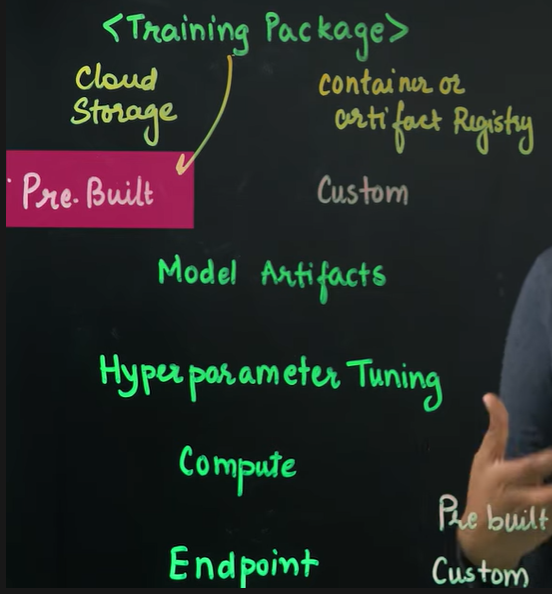 <Training Package>
Cloud
Storage
container or
artifact Registry
Pre-Built
Custom
Model Artifacts
Hyperparameter Tuning
Compute
Pre built
Endpoint
Custom